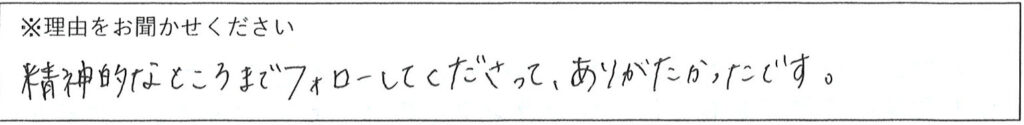 ※理由をお聞かせください
精神的なところまでフォローしてくださって、ありがたかったです。